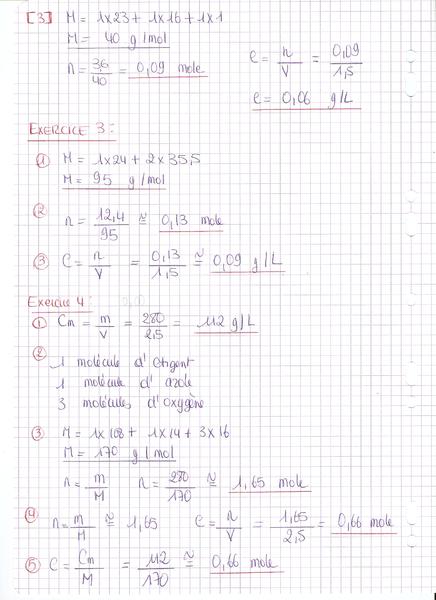 [3] M = 1x23 + 1x16 + 1x1
M = 40 g/mol
n = 3,6/40 = 0,09 mole
C = n/V = 0,09/1,5
C = 0,06 g/L
EXERCICE 3:
① M = 1x24 + 2x35,5
M = 95 g/mol
② n = 12,4/95 ≅ 0,13 mole
③ C = n/V = 0,13/1,5 ≅ 0,09 g/L
Exercice 4:
① Cm = m/V = 280/2,5 = 112 g/L
② 1 molécule d'argent
1 molécule d'azote
3 molécules d'oxygène
③ M = 1x108 + 1x14 + 3x16
M = 170 g/mol
n = m/M n = 280/170 ≅ 1,65 mole
④ n = m/M ≅ 1,65 C = n/V = 1,65/2,5 = 0,66 mole
⑤ C = Cm/M = 112/170 ≅ 0,66 mole